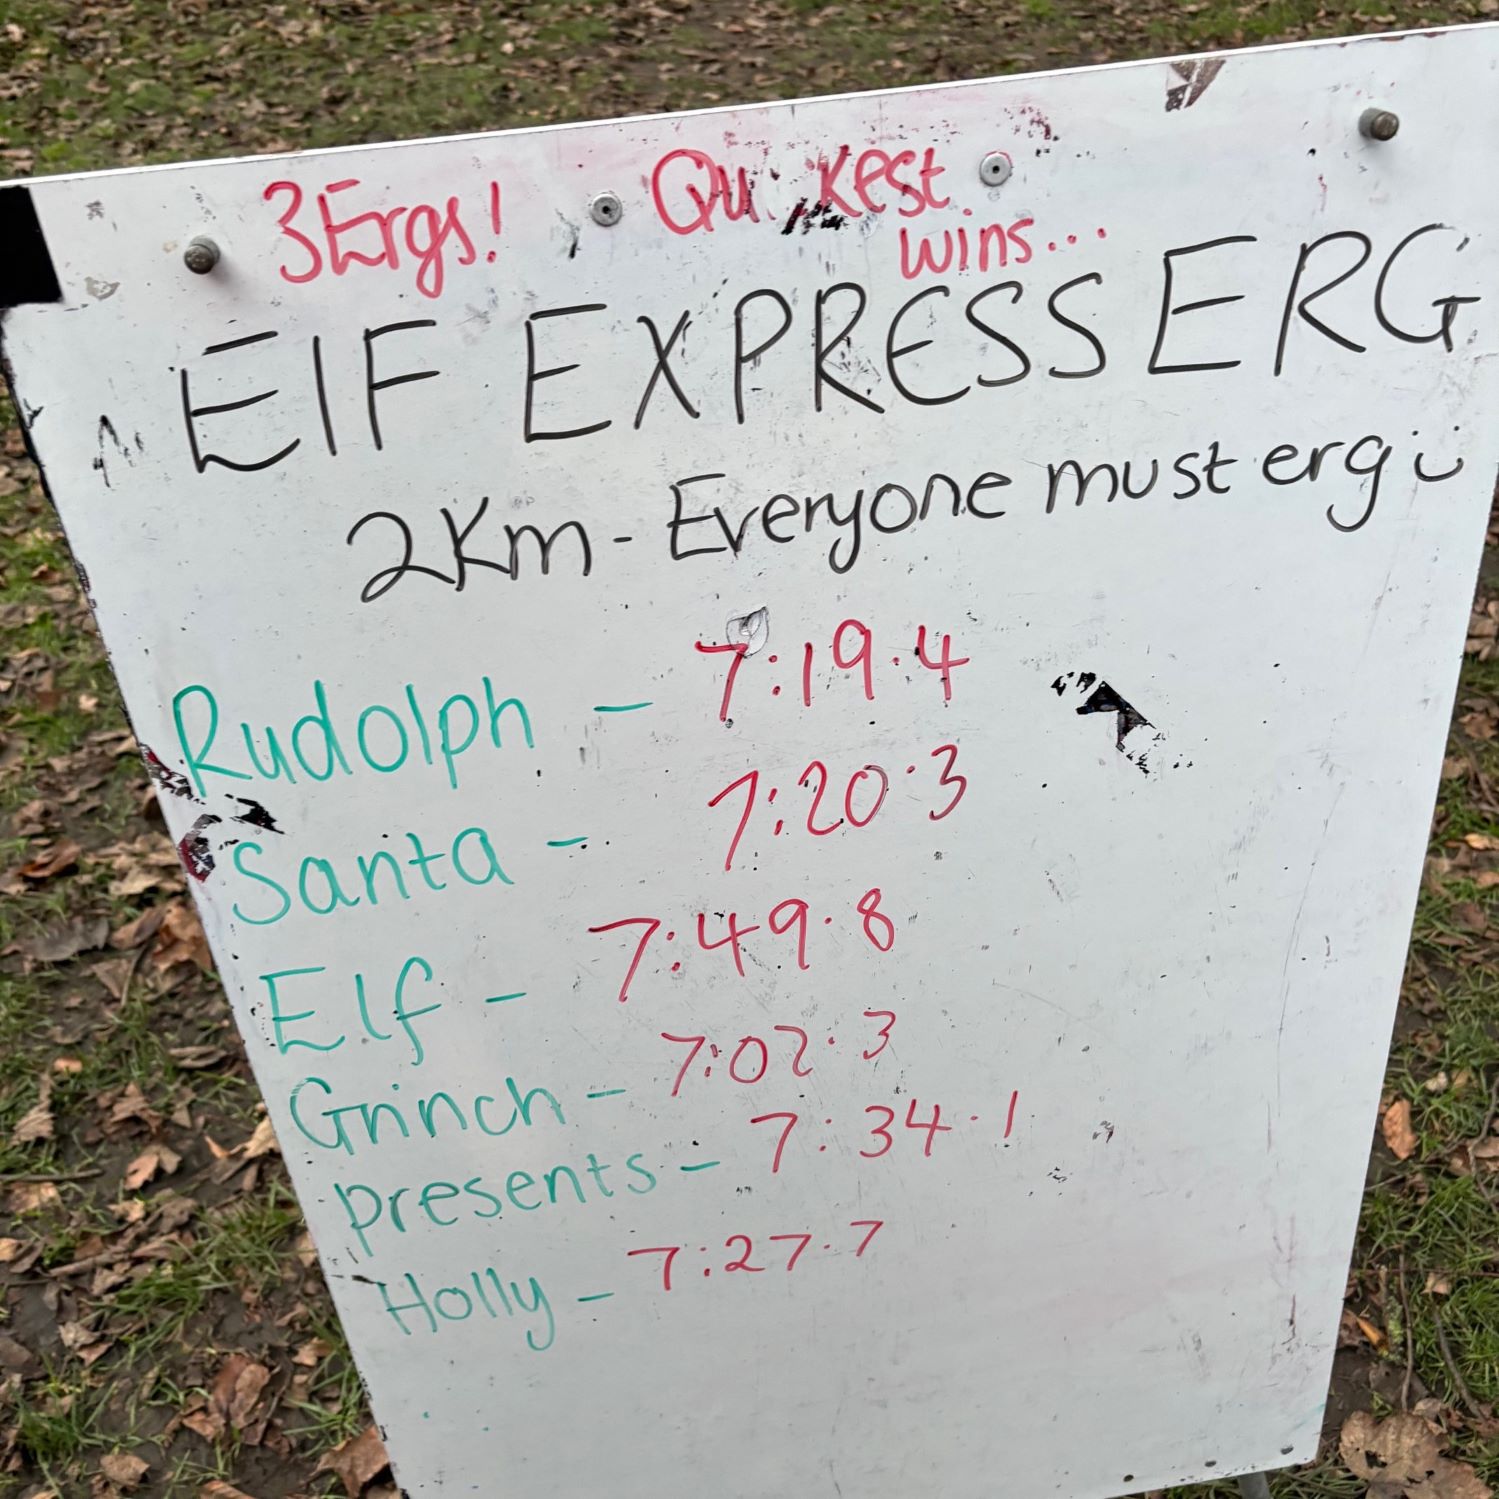 3Ergs! Qu kest
wins...
ElF EXPRESS ERG
2Km - Everyone must erg ü
Rudolph - 7:19.4
Santa - 7:20.3
Elf - 7:49.8
Grinch - 7:02.3
presents - 7:34.1
Holly - 7:27.7